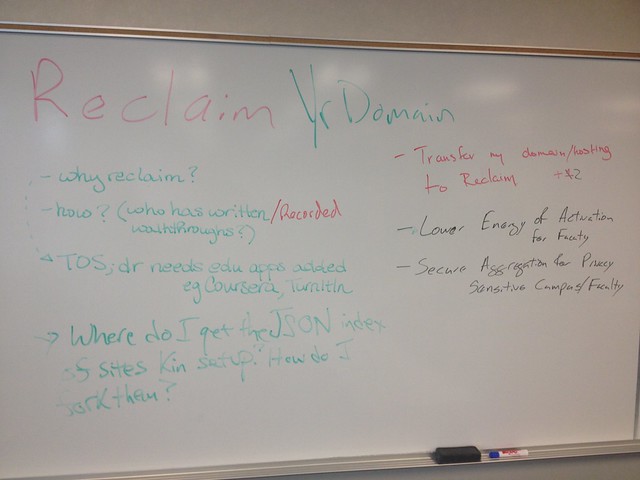 Reclaim Yr Domain
- why reclaim?
- how? (who has written/Recorded
walkthroughs?)
TOS;dr needs edu apps added
eg Coursera, TurnItIn
→ Where do I get the JSON index
of 5 sites Kin setup? How do I
fork them?
- Transfer my domain/hosting
to Reclaim
- Lower Energy of Activation
for Faculty
- Secure Aggregation for Privacy
Sensitive Campus/Faculty